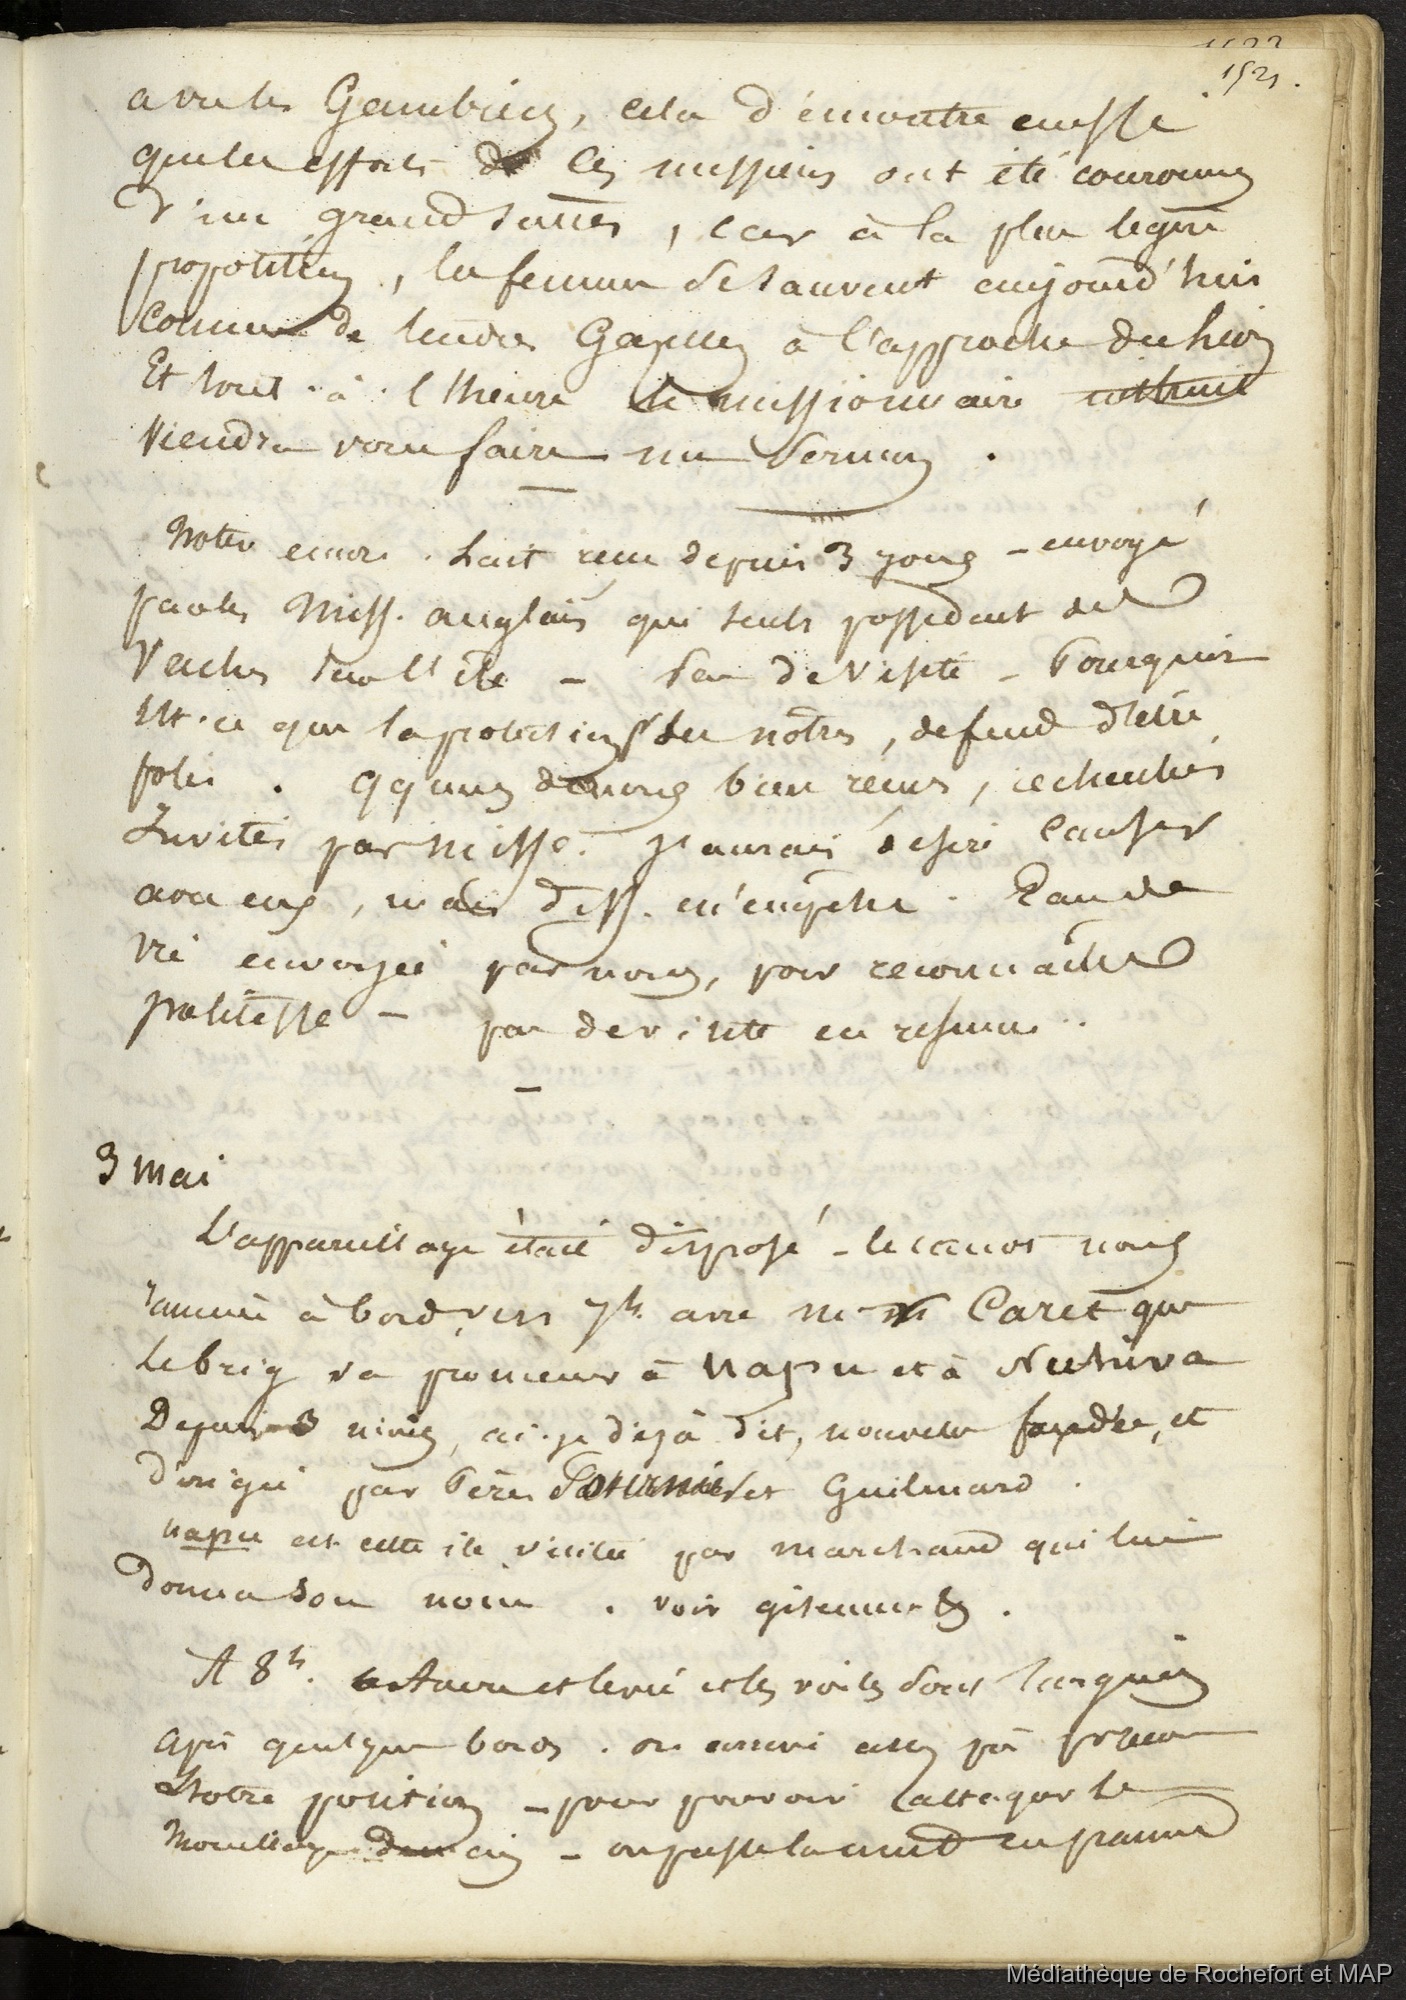 1522
1521.
avec les Gambiens, cela démontre aussi
que les efforts de ces missions ont été couronnés
d'un grand succès, car à la plus légère
proposition, les femmes se sauvent aujourd'hui
comme de tendres Gazelles à l'approche du lion
Et tout-à-l'heure le missionnaire
viendra vous faire un Sermon.
Noter encore. Lait reçu depuis 3 jours - envoyé
par les Miss. anglais qui seuls possèdent des
Vaches sur l'ile - Pas de Visite - Pourquoi
Est-ce que la protection des notres, defend d'etre
polis. qques uns de nous bien recus, recherchés
Invités par Miss. J'aurais désiré causer
avec eux, mais m'empêche. Eau de
vie envoyée par nous, pour reconnaitre
politesse - pas de visite en resumé.
3 mai
L'appareillage était disposé - le canot nous
ramène à bord vers 7h. avec Mr Caret que
Le brig va promener à Uapu et à Nuhiva
Depuis 3 mois, ai-je déjà dit, nouvelle fondée, et
dirigée par Pères et Guilmard.
Uapu est cette ile visitée par Marchand qui lui
donna son nom. voir gisements.
A 8h. est levé et les voiles
après quelques bords. on arrive assez près
Notre position - pour pouvoir attaquer le
Mouillage demain - on passe la nuit en panne
Médiathèque de Rochefort et MAP